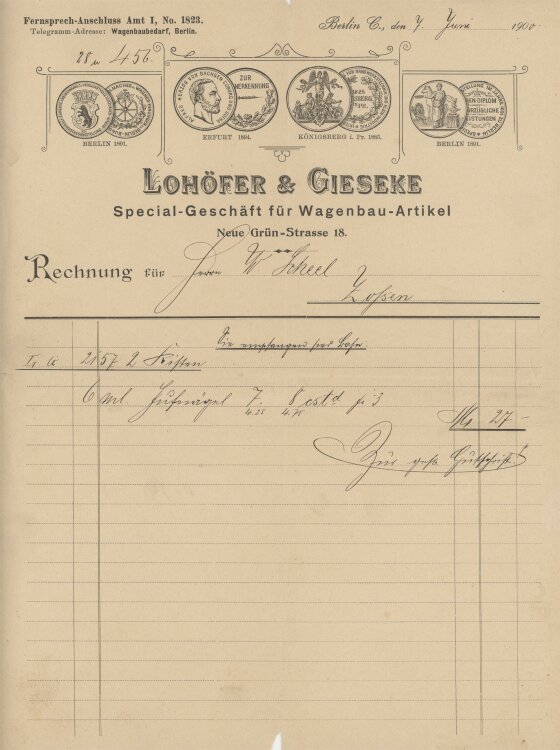 Fernsprech-Anschluss Amt I, No. 1823.
Telegramm-Adresse: Wagenbaubedarf, Berlin.
Berlin C., den 7. Juni 1900
28 u 456.
BERLIN 1891.
ALFRED HERZOG VON SACHSEN COBURG GOTHA
ZUR
ERKENNUNG
ERFURT 1894.
KÖNIGSBERG i. Pr. 1895.
BERLIN 1891.
LOHÖFER & GIESEKE
Special-Geschäft für Wagenbau-Artikel
Neue Grün-Strasse 18.
Rechnung für Herrn W Scheel
Zossen
Sie empfangen per Bahn
2157 2 Kisten
6 ml. Hufnägel 7. 8
4.25 4.75
Mk 27 -
Zur gefl. Gutschrift!